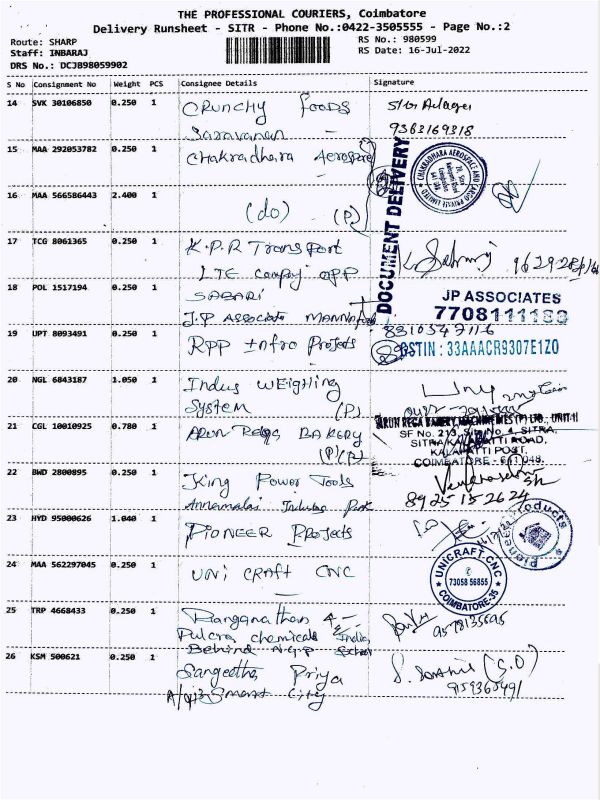 THE PROFESSIONAL COURIERS, Coimbatore
Delivery Runsheet - SITR - Phone No.:0422-3505555 - Page No.:2
Route: SHARP
Staff: INBARAJ
DRS No.: DCJB98059902
RS No.: 980599
RS Date: 16-Jul-2022
S No Consignment No Weight PCS Consignee Details Signature
14 SVK 30106850 0.250 1 Crunchy Foods
Saravanan
9363169318
15 MAA 292053782 0.250 1 Chakradhara Aerospace
DOCUMENT DELIVERY
CHAKRADHARA AEROSPACE AND CARGO PRIVATE LIMITED
16 MAA 566586443 2.400 1 (do) (P)
17 TCG 8061365 0.250 1 K.P.R Transport
LTE Compy opp
18 POL 1517194 0.250 1 SABARI
J.P Associate
JP ASSOCIATES
7708111188
19 UPT 8093491 0.250 1 RPP Infro Projets
8310547116
GSTIN : 33AAACR9307E1Z0
20 NGL 6843187 1.050 1 Indus Weighling
System (P)
21 CGL 10010925 0.780 1 Arun Rega BAKERY
(P) (P)
ARUN REGA BAKERY MACHINERIES (P) LTD., UNIT-II
SF No. 213, Site No. 4, SITRA,
SITRA KALAPATTI ROAD,
KALAPATTI POST,
COIMBATORE - 641 048.
22 BWD 2800895 0.250 1 King Power Tools
Annamalai Indus Park
8925152624
23 HYD 95000626 1.040 1 Pioneer Projects
Pioneer Products
24 MAA 562297045 0.250 1 UNi CRAFT CNC
UNICRAFT CNC
73058 56855
COIMBATORE-35
25 TRP 4668433 0.250 1 Ranganathan
Pulcra chemicals India
Behind N.G.P School
9578135695
26 KSM 500621 0.250 1 Sangeetha Priya
Smart City
9159365491